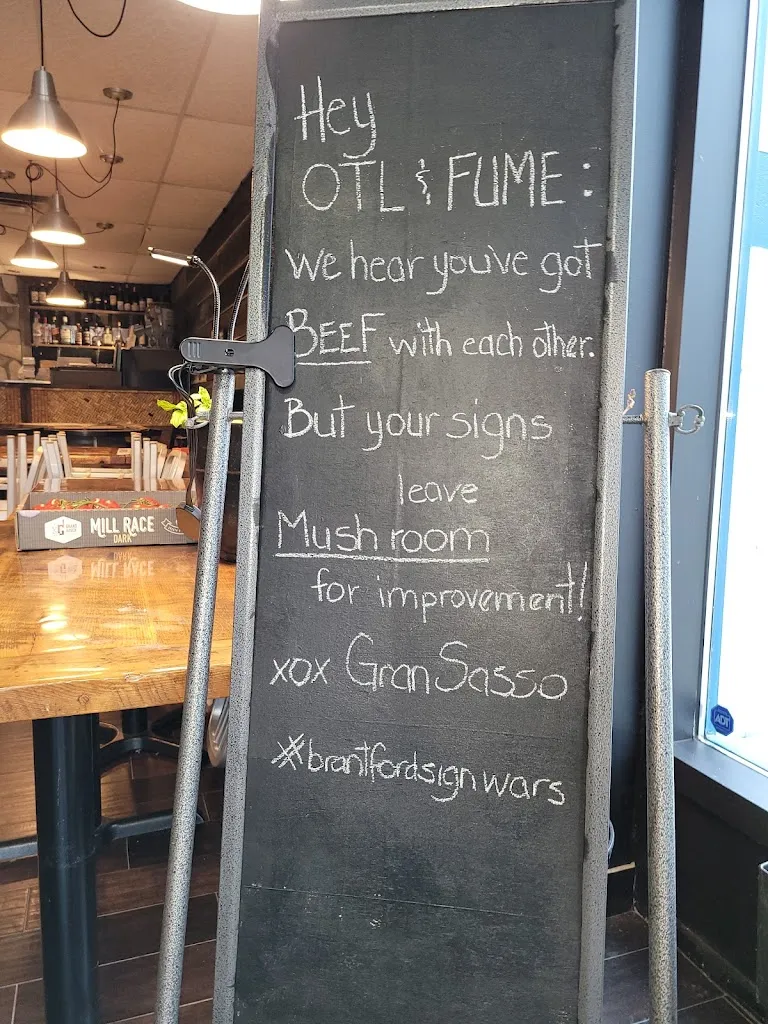 Hey
OTL & FUME:
we hear you've got
BEEF with each other.
But your signs
leave
Mushroom
for improvement!
xox Gran Sasso
#brantfordsignwars
MILL RACE
DARK
ADT